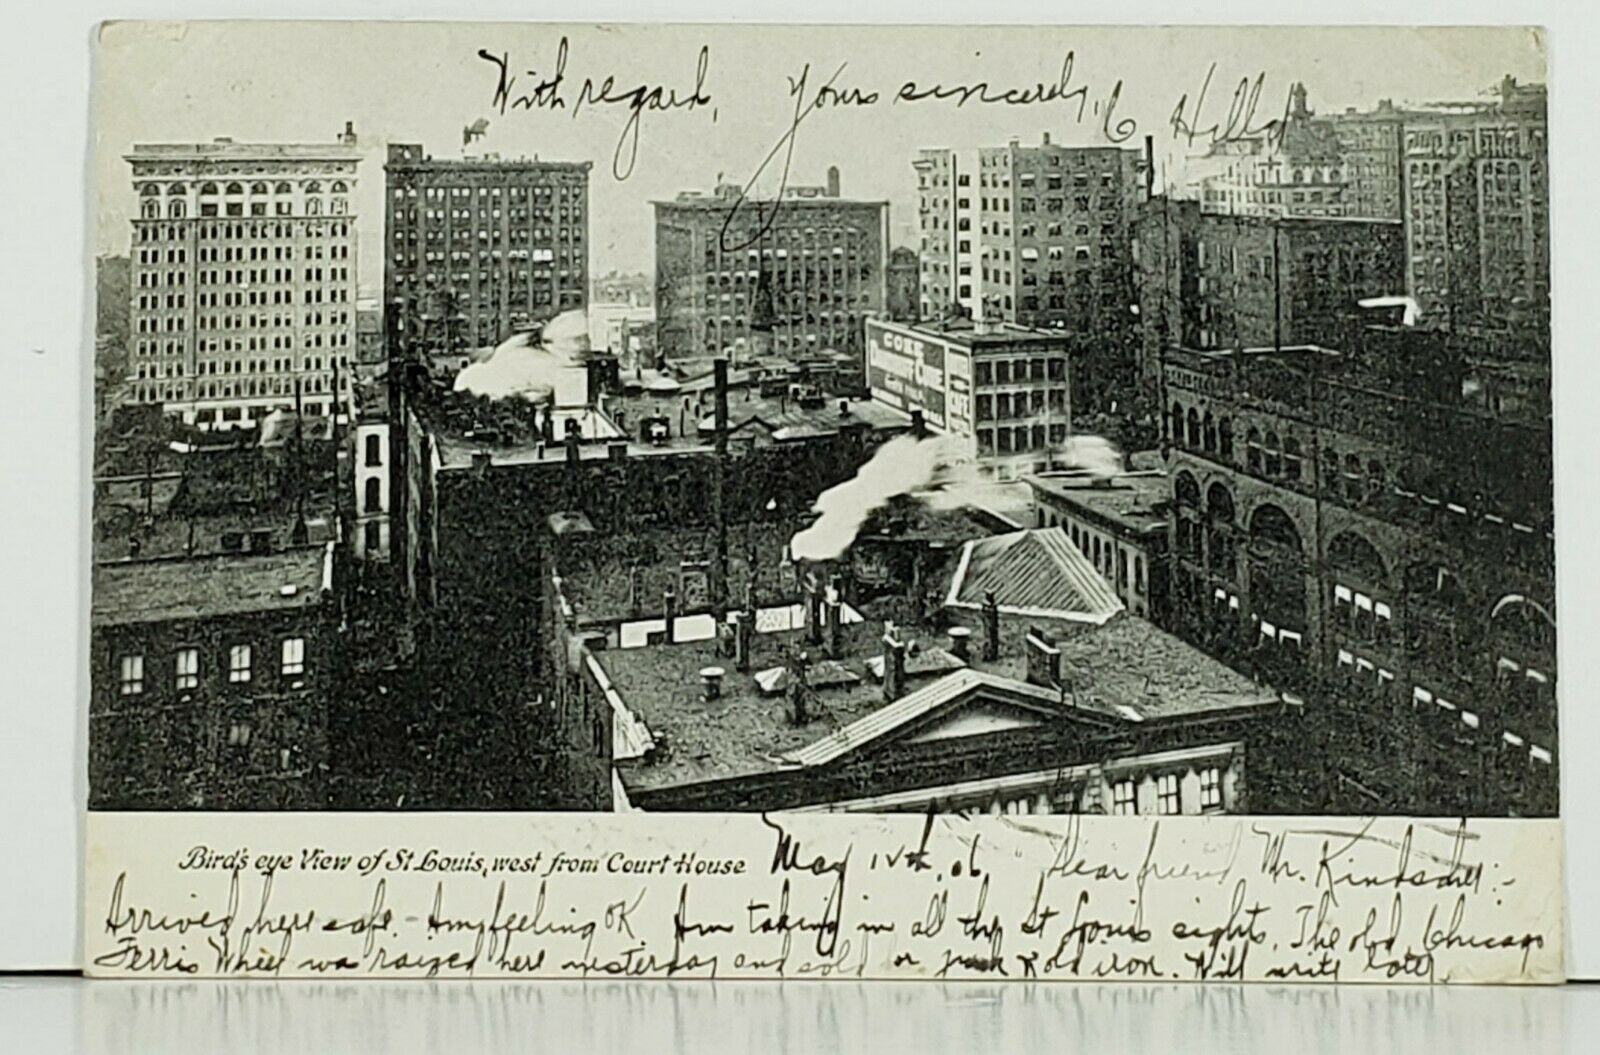 With regard, Yours sincerely, C Hilld
COKE
CAFE
Bird's eye View of St Louis, west from Court House May 12th, 06. Dear friend Mr. Kindsdall:-
Arrived here safe. - Am feeling OK Am taking in all the St Louis sights. The old Chicago
Ferris Wheel was raized here yesterday and sold for junk & old iron. Will write later.